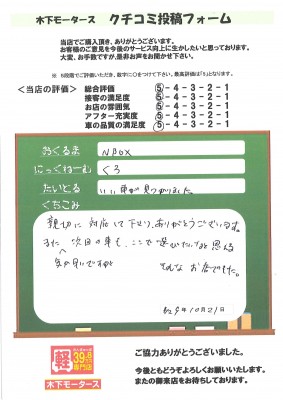 木下モータース クチコミ投稿フォーム
当店でご購入頂き、ありがとうございます。
お客様のご意見を今後のサービス向上に生かしたいと思っております。
大変、お手数ですが、是非お声をお聞かせ下さい。
※ 5段階でご評価いただき、数字に○をつけて下さい。最高評価は「5」となります。
＜当店の評価＞
総合評価 ⑤－4－3－2－1
接客の満足度 ⑤－4－3－2－1
お店の雰囲気 ⑤－4－3－2－1
アフター充実度 ⑤－4－3－2－1
車の品質の満足度 ⑤－4－3－2－1
おくるま NBOX
にっくねーむ くろ
たいとる いい車が見つかりました。
くちこみ
親切に対応して下さり、ありがとうございます。
また 次回の車も、ここで選びたいなと思える
気が早いですが そんな お店でした。
R29年10月21日
軽
39.8万円
専門店
木下モータース
ご協力ありがとうございました。
今後ともどうぞよろしくお願いいたします。
またの御来店をお待ちしております。